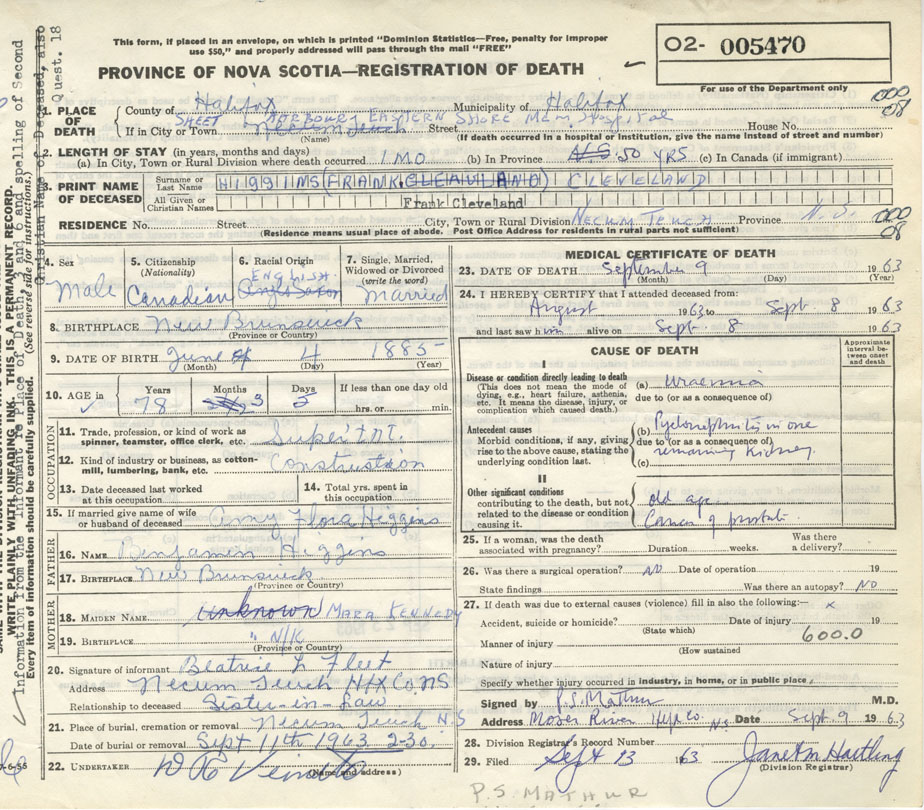 This form, if placed in an envelope, on which is printed "Dominion Statistics—Free, penalty for improper
use $50," and properly addressed will pass through the mail "FREE"
PROVINCE OF NOVA SCOTIA—REGISTRATION OF DEATH
O2- 005470
For use of the Department only
000
08
1. PLACE OF DEATH
County of Halifax Municipality of Halifax
SHEET HARBOUR, EASTERN SHORE Mem. Hospital
If in City or Town Necum Teuch Street House No.
(Name) (If death occurred in a hospital or institution, give the name instead of street and number)
2. LENGTH OF STAY (in years, months and days)
(a) In City, Town or Rural Division where death occurred 1 MO (b) In Province N.S. 50 YRS (c) In Canada (if immigrant)
3. PRINT NAME OF DECEASED
Surname or Last Name HIGGINS (FRANK CLEAVLAND) CLEVELAND
All Given or Christian Names Frank Cleveland
RESIDENCE No. Street City, Town or Rural Division Necum Teuch Province N.S.
(Residence means usual place of abode. Post Office Address for residents in rural parts not sufficient)
000
08
4. Sex Male
5. Citizenship (Nationality) Canadian
6. Racial Origin ENGLISH Anglo Saxon
7. Single, Married, Widowed or Divorced (write the word) Married
8. BIRTHPLACE New Brunswick
(Province or Country)
9. DATE OF BIRTH June 4 1885
(Month) (Day) (Year)
10. AGE in Years 78 Months 3 Days 5 If less than one day old
hrs. or min.
OCCUPATION
11. Trade, profession, or kind of work as spinner, teamster, office clerk, etc. Superint.
12. Kind of industry or business, as cotton-mill, lumbering, bank, etc. Construction
13. Date deceased last worked at this occupation
14. Total yrs. spent in this occupation
15. If married give name of wife or husband of deceased Amy Flora Higgins
FATHER
16. NAME Benjamin Higgins
17. BIRTHPLACE New Brunswick
(Province or Country)
MOTHER
18. MAIDEN NAME Unknown MARA KENNEDY
19. BIRTHPLACE " N/K
(Province or Country)
20. Signature of informant Beatrice L Fleet
Address Necum Teuch Hfx Co. NS
Relationship to deceased Sister-in-law
21. Place of burial, cremation or removal Necum Teuch N.S
Date of burial or removal Sept 11th 1963 2-30.
22. UNDERTAKER
(Name and address)
MEDICAL CERTIFICATE OF DEATH
23. DATE OF DEATH September 9 1963
(Month) (Day) (Year)
24. I HEREBY CERTIFY that I attended deceased from:
August 1963 to Sept. 8 1963
and last saw him alive on Sept. 8 1963
CAUSE OF DEATH
Approximate interval between onset and death
I
Disease or condition directly leading to death (a) Uraemia
(This does not mean the mode of dying, e.g., heart failure, asthenia, etc. It means the disease, injury, or complication which caused death.)
due to (or as a consequence of)
Antecedent causes (b) Pyelonephritis in one
Morbid conditions, if any, giving rise to the above cause, stating the underlying condition last.
due to (or as a consequence of)
remaining kidney
(c)
II
Other significant conditions contributing to the death, but not related to the disease or condition causing it.
old age
Cancer of prostate
25. If a woman, was the death associated with pregnancy? Duration weeks. Was there a delivery?
26. Was there a surgical operation? NO Date of operation 19
State findings Was there an autopsy? NO
27. If death was due to external causes (violence) fill in also the following:— x
Accident, suicide or homicide? Date of injury 19
(State which)
600.0
Manner of injury
(How sustained)
Nature of injury
Specify whether injury occurred in industry, in home, or in public place
Signed by P.S. Mathur M.D.
Address Moser River Hfx Co. N.S. Date Sept. 9 1963
28. Division Registrar's Record Number
29. Filed Sept 13 1963 Janet M Hartling
(Division Registrar)
P.S. MATHUR
WRITE PLAINLY WITH UNFADING INK. THIS IS A PERMANENT RECORD.
Every item of information should be carefully supplied. (See reverse side for instructions.)
Information from the Informant re Place of Death, and 6 and spelling of Second
Christian Name of Deceased, also
Quest. 18